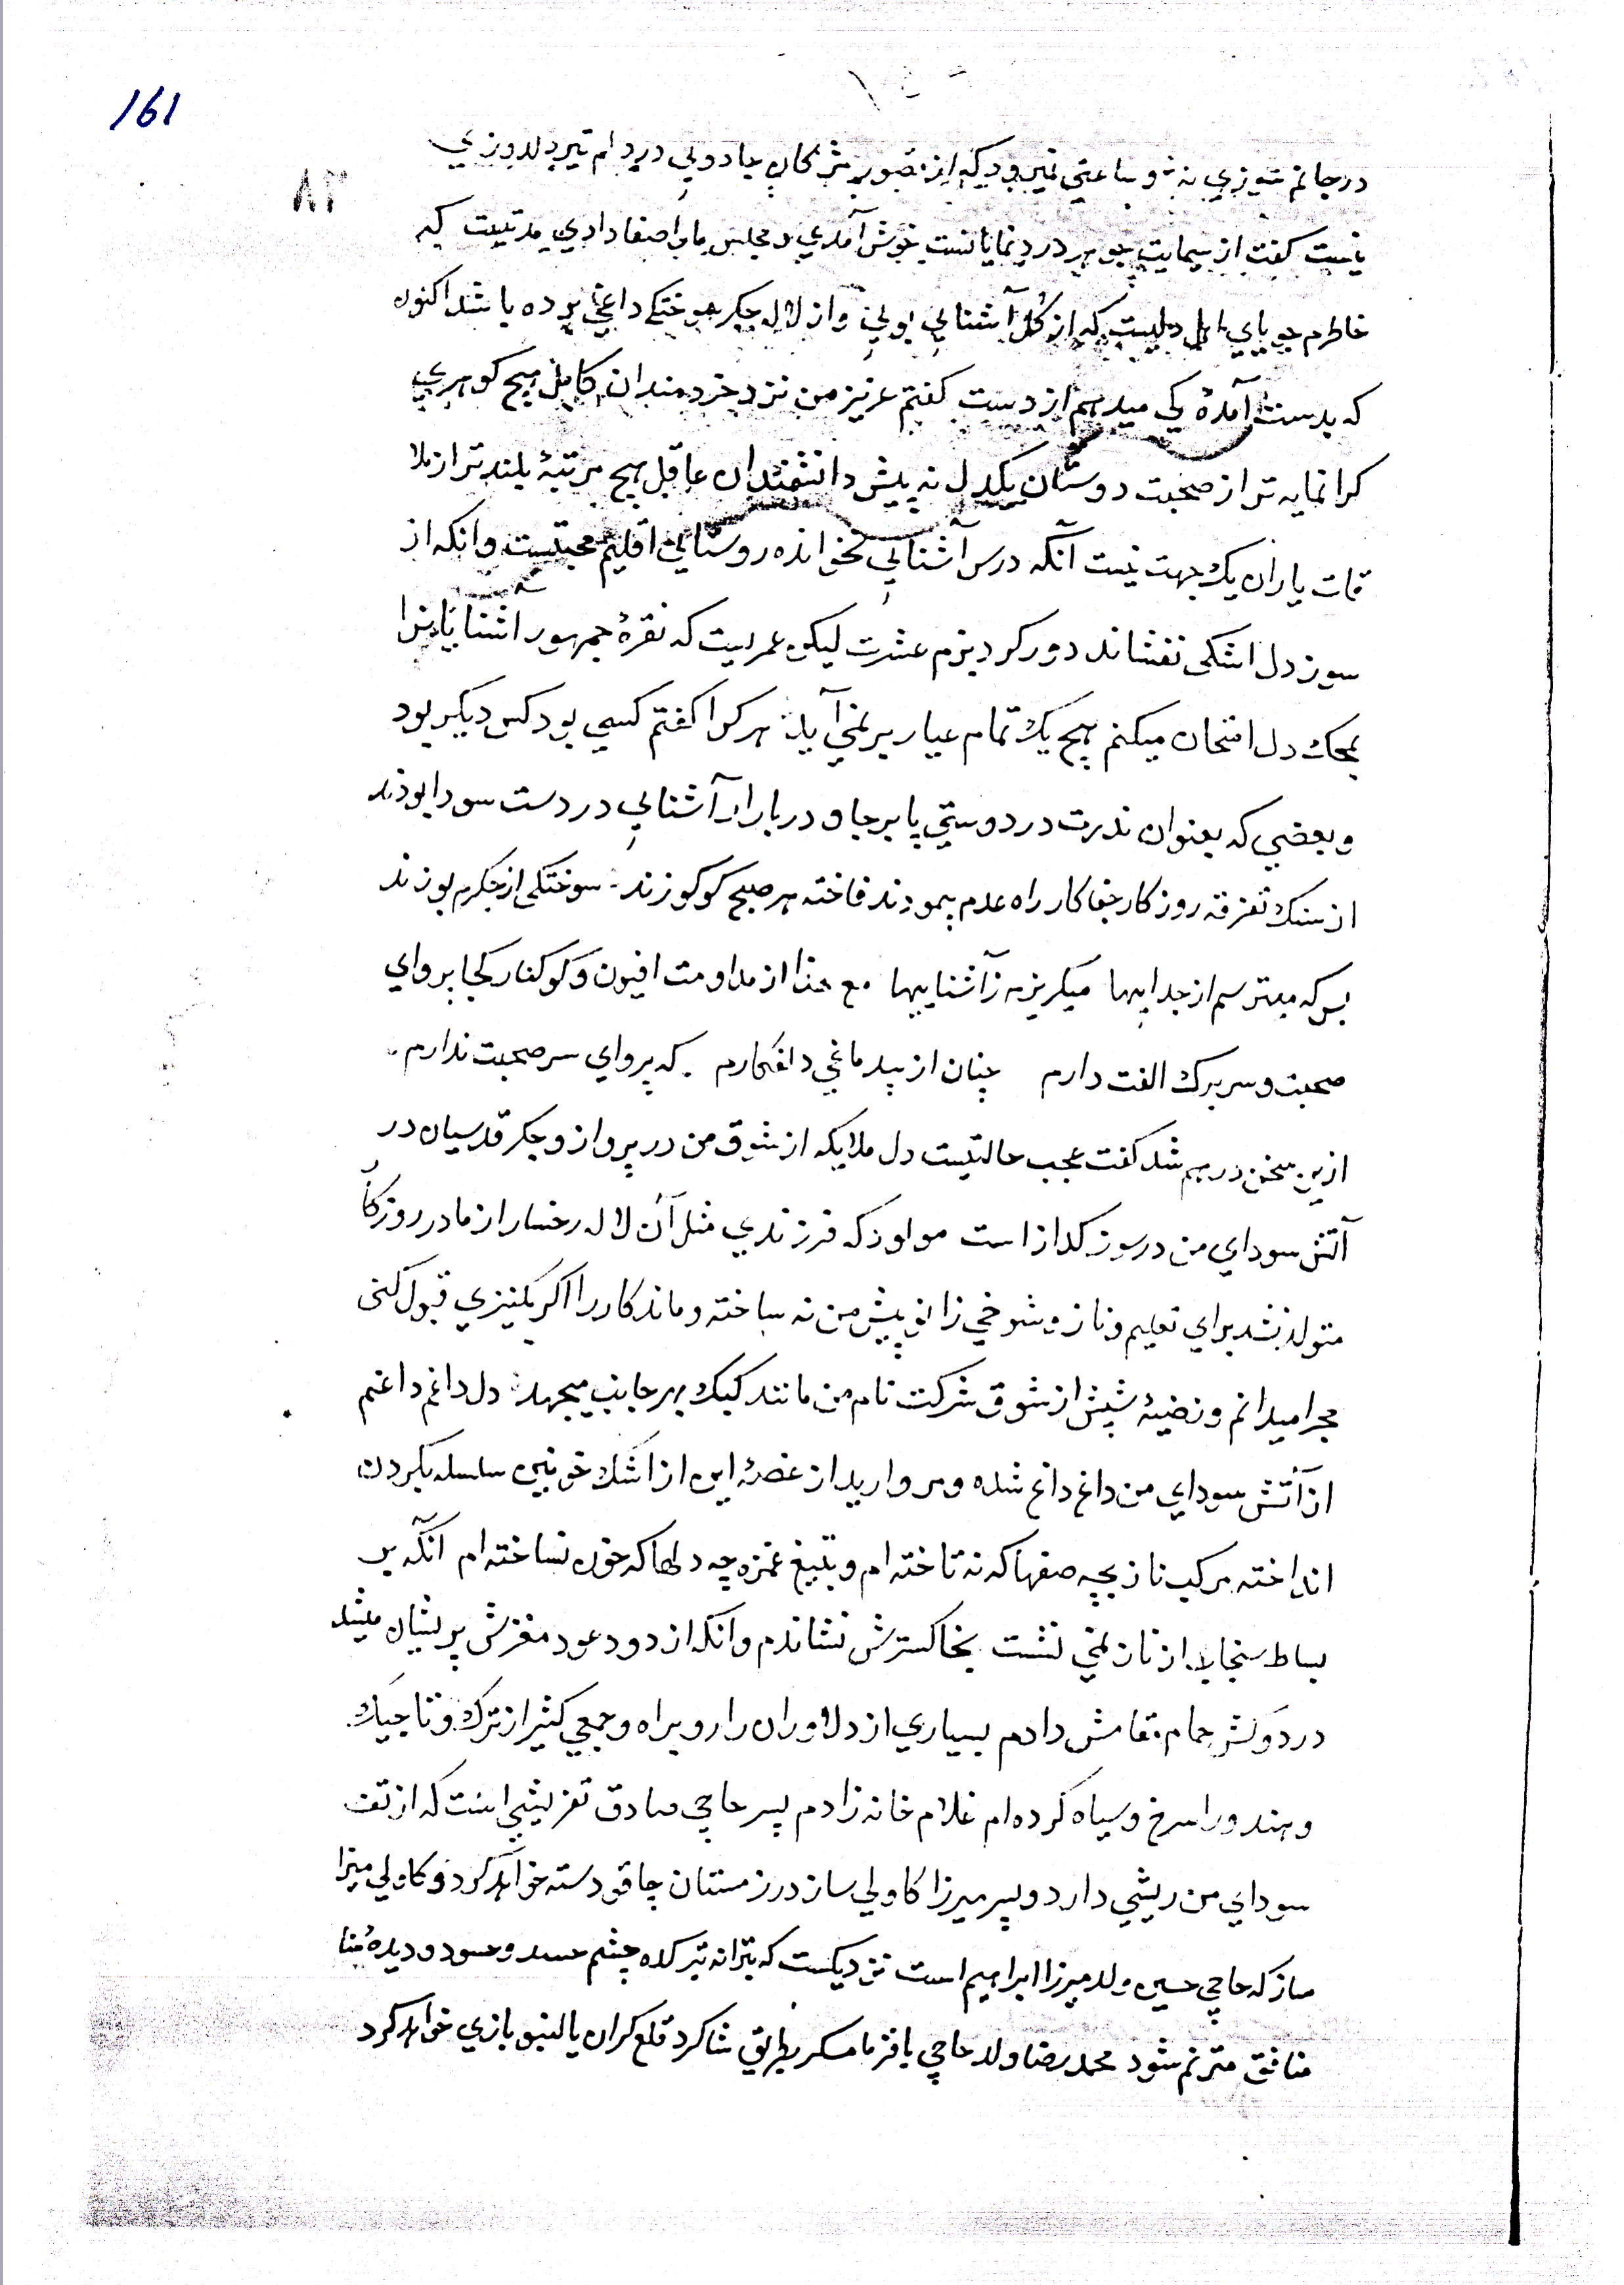 161
۹۸
در جانم سوزي نه و ساعتي نميرود که از تصور مژکان جادويي در دلم تير دلدوزي
نيست کفت از سيمايت جوهر درد نمايانست خوش آمدي و مجلس ما را صفا دادي مدتيست که
خاطرم جوياي اهل دليست که از کل آشنايي بويي و از لاله جکر سوختکي داغي برده باشد اکنون
که بدست آمدۀ کي ميدهم از دست کفتم عزيز من نزد خردمندان کامل هيچ کوهري
کرانمايه تر از صحبت دوستان يکدل نه پيش دانشمندان عاقل هيچ مرتبۀ بلندتر از ملا
قات ياران يک جهت نيست آنکه درس آشنايي نخوانده روستايي اقليم محبتست وانکه از
سوز دل اشکي نفشاند دور کرد بزم عشرت ليکن عمريست که نقرۀ جمهور اشنايانرا
بمحک دل امتحان ميکنم هيچ يک تمام عيار بر نمي آيد هر کرا کفتم کسي بود کس ديکر بود
و بعضي که بعنوان ندرت در دوستي پا برجا و در بازار آشنايي در دست سودا بودند
از سنک تفرقه روزکار جفاکار راه عدم پيمودند فاخته هر صبح کوکو زند سوختکي از جکرم بو زند
بس که ميترسم از جداييها ميکريزم ز آشناييها مع هذا از مداومت افيون و کوکنار کجا پرواي
صحبت و سر برک الفت دارم چنان از بيدماغي دلفکارم که پرواي سر صحبت ندارم
ازين سخن درهم شد کفت عجب حالتيست دل ملايکه از شوق من در پرواز و جکر قدسيان در
آتش سوداي من در سوز کداز است مولود که فرزندي مثل آن لاله رخسار از مادر روزکا
متولد نشد براي تعليم و ناز و شوخي زانو پيش من ته ساخته و ماندکار را اکر بکنيزي قبول کني
مجرا ميدانم و نضيۀ شپش از شوق شرکت نام من مانند کيک بهر جانب ميجهد دل داغم داغم
از آتش سوداي من داغ داغ شده و مرواريد از غصۀ اين از اشک خونين سلسله بکردن
انداخته مرکب ناز بچه صفها که نه تاخته ام و بتيغ غمزه چه دلها که خون نساخته ام آنکه بر
بساط سنجاب از ناز نمي نشست بخاکسترش نشاندم وانکه از دود عود مغزش پريشان ميشد
در دولش حمام مقامش دادم بسياري از دلاوران را رو براه و جمعي کثير از ترک و تاجيک
و هندو را سرخ و سياه کرده ام غلام خانه زادم پسر حاجي صادق تفريشي است که از تف
سوداي من ريشي دارد و پسر ميرزا کاولي ساز در زمستان چاقو دسته خواهد کرد و کاولي ميرزا
ساز که حاجي حسين ولد ميرزا ابراهيم است نزديکست که بترانه تير کلاه چشم حسد و حسود و ديدۀ
منافق مترنم شود محمد رضا ولد حاجي باقر مسکر بطريق شاکرد قلع کران بالنبو بازي خواهد کرد